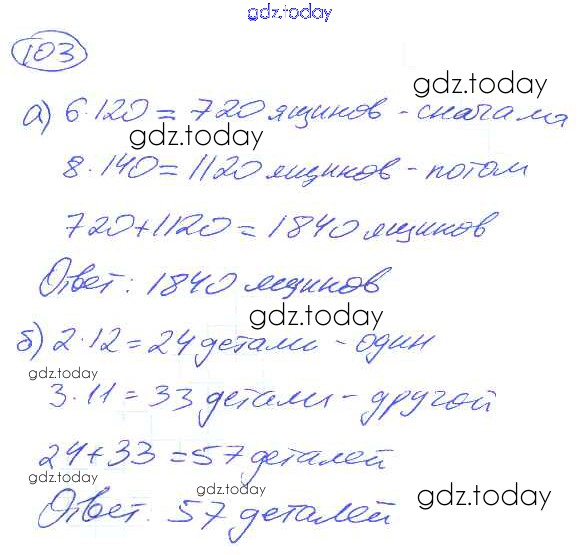 gdz.today
103
gdz.today
а) 6·120 = 720 ящиков - сначала
gdz.today
8·140 = 1120 ящиков - потом
720+1120 = 1840 ящиков
Ответ: 1840 ящиков
gdz.today
б) 2·12 = 24 детали - один
gdz.today
3·11 = 33 детали - другой
24+33 = 57 деталей
gdz.today
gdz.today
gdz.today
Ответ. 57 деталей